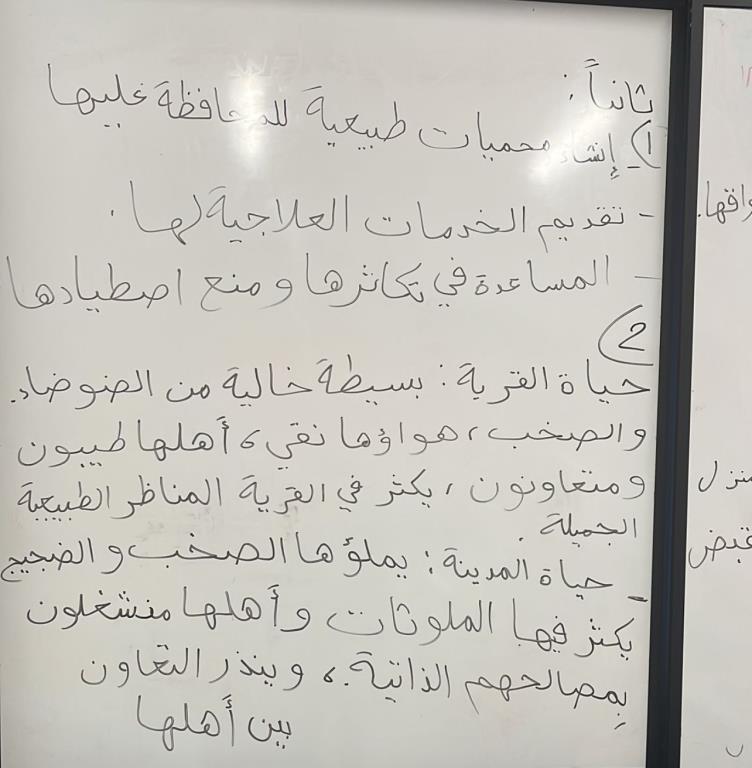 ثانياً :
1) إنشاء محميات طبيعية للمحافظة عليها
- تقديم الخدمات العلاجية لها.
- المساعدة في تكاثرها ومنع اصطيادها
2)
حياة القرية : بسيطة خالية من الضوضاء.
والصخب، هواؤها نقي، أهلها طيبون
ومتعاونون، يكثر في القرية المناظر الطبيعية
الجميلة.
- حياة المدينة : يملؤها الصخب والضجيج
يكثر فيها الملوثات وأهلها منشغلون
بِمصالحهم الذاتية.، ويندر التعاون
بين أهلها
وافقها.
منزل